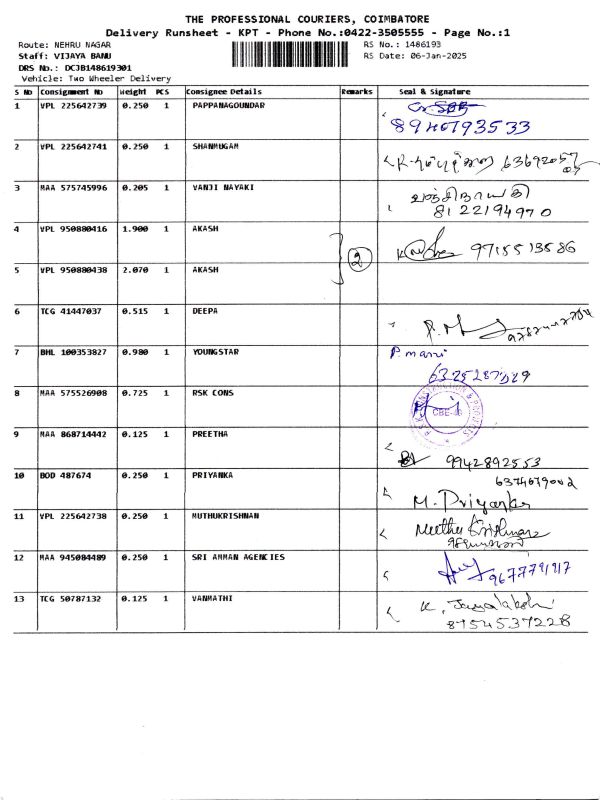 THE PROFESSIONAL COURIERS, COIMBATORE
Delivery Runsheet - KPT - Phone No.:0422-3505555 - Page No.:1
Route: NEHRU NAGAR
RS No.: 1486193
Staff: VIJAYA BANU
RS Date: 06-Jan-2025
DRS No.: DCJB148619301
Vehicle: Two Wheeler Delivery
S No Consignment No Weight PCS Consignee Details Remarks Seal & Signature
1 VPL 225642739 0.250 1 PAPPANAGOUNDAR
2 VPL 225642741 0.250 1 SHANMUGAM
3 MAA 575745996 0.205 1 VANJI NAYAKI வஞ்சிநாயகி
8122194970
4 VPL 950880416 1.900 1 AKASH 9715513586
2
5 VPL 950880438 2.070 1 AKASH
6 TCG 41447037 0.515 1 DEEPA
7 BHL 100353827 0.980 1 YOUNGSTAR P. mani
8 MAA 575526908 0.725 1 RSK CONS
9 MAA 868714442 0.125 1 PREETHA
9942892553
10 BOD 487674 0.250 1 PRIYANKA
M. Priyanka
11 VPL 225642738 0.250 1 MUTHUKRISHNAN
12 MAA 945084489 0.250 1 SRI AMMAN AGENCIES
13 TCG 50787132 0.125 1 VANMATHI
8754537228